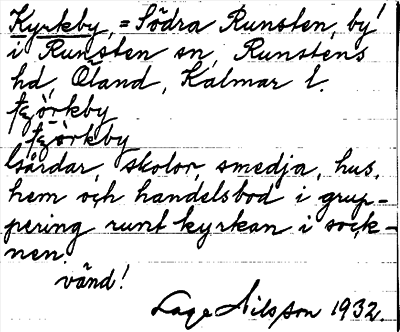 Kyrkby, = Södra Runsten, by
i Runsten sn, Runstens
hd, Öland, Kalmar l.
Gårdar, skolor, smedja, hus,
hem och handelsbod i grup-
pering runt kyrkan i sock-
nen.
vänd!
Lage Nilsson 1932.